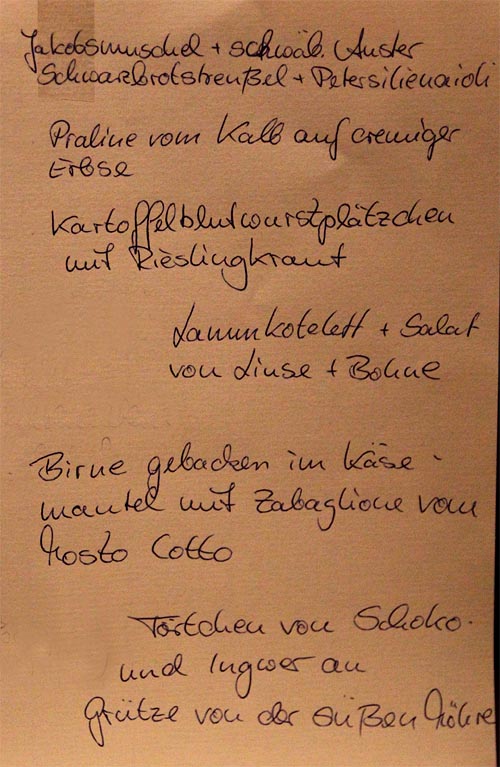 Jakobsmuschel + schwäb. Auster
Schwarzbrotstreußel + Petersilienaioli
Praline vom Kalb auf cremiger
Erbse
Kartoffelblutwurstplätzchen
mit Rieslingkraut
Lammkotelett + Salat
von Linse + Bohne
Birne gebacken im Käse-
mantel mit Zabaglione vom
Mosto Cotto
Törtchen von Schoko-
und Ingwer an
Grütze von der süßen Möhre